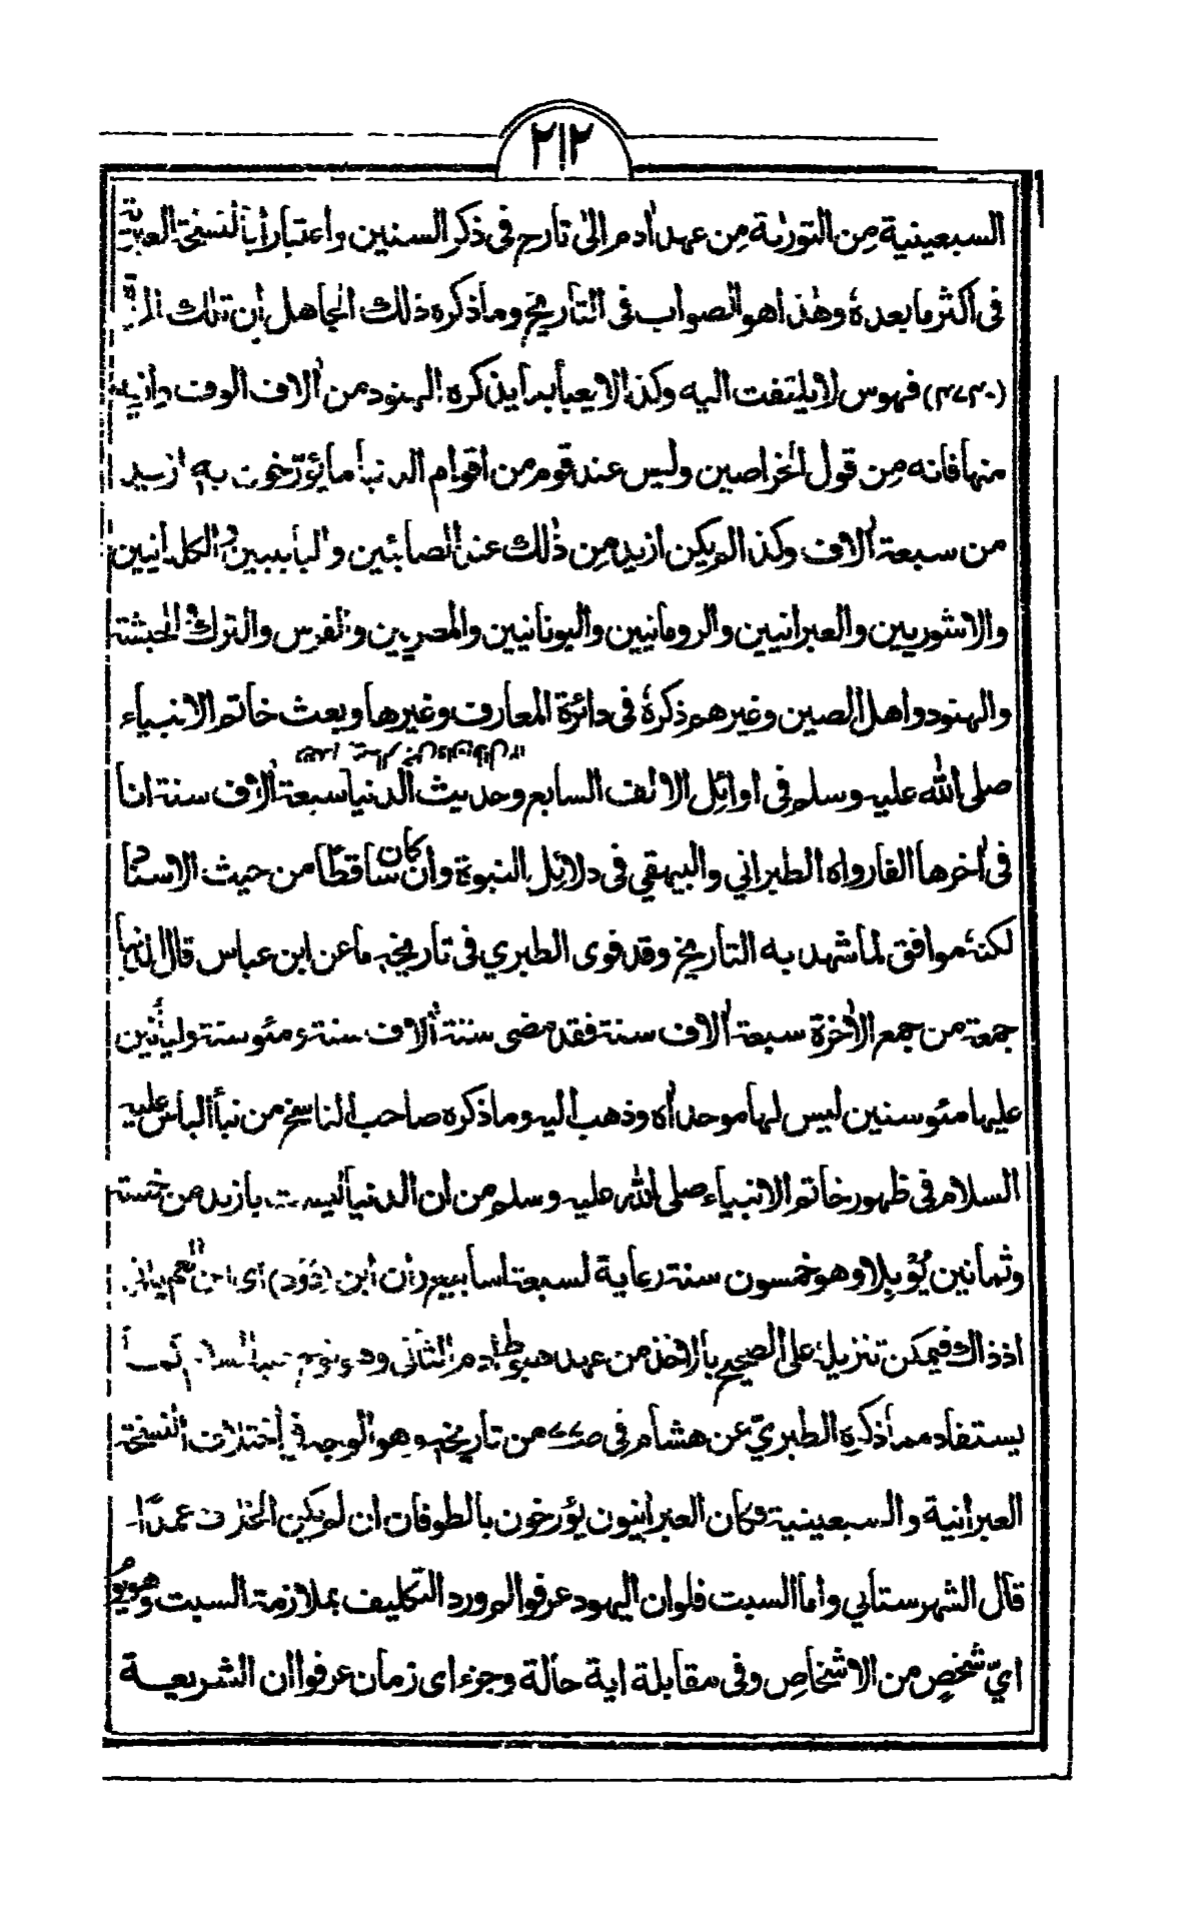 ٢١٢
السبعينية من التورٰىة من عهد اٰدم الىٰ تارح فى ذكر السنين واعتباراً بالنسخة العبرية
فى اكثر ما بعدهٗ وهٰذا هو الصواب فى التأريخ وما ذكره ذلك الجاهل ان تلك
فهوس لا يلتفت اليه وكذا لا يعبأ بما يذكره الهنود من اٰلاف الوقت وازيد
منها فانه من قول الخراصين وليس عند قوم من اقوام الدنيا ما يؤرّخون به ازيد
من سبعة اٰلاف وكذا لم يكن ازيد من ذٰلك عند الصابئين والبابيين والكلدانيين
والاشوريين والعبرانيين والرومانيين واليونانيين والمصريين والفرس والترك والحبشة
والهنود واهل الصين وغيرهم ذكرهٗ فى دائرة المعارف وغيرها وبعث خاتم الانبياء
صلى الله عليه وسلم فى اوائل الالف السابع وحديث الدنيا سبعة اٰلاف سنة انا
فى اٰخرها الفا رواه الطبراني والبيهقي فى دلائل النبوة وان كان ساقطًا من حيث الاسناد
لكنهٗ موافق لما شهد به التاريخ وقد قوى الطبري فى تاريخه ما عن ابن عباس قال الدنيا
جمعة من جمع الاٰخرة سبعة اٰلاف سنة فقد مضى ستة اٰلاف سنة ومئو سنة وليأتين
عليها مئو سنين ليس لها موحد اه وذهب اليه وما ذكره صاحب الناسخ من نبأ الياس عليه
السلام فى ظهور خاتم الانبياء صلى الله عليه وسلم من ان الدنيا ليست بازيد من خمسة
وثمانين يُوبيلا وهو خمسون سنة رعاية لسبعة اسابيع وان ابن (دؤد) اى
اذ ذاك فيمكن تنزيله على الصحيح بالاخذ من عهد هبوط اٰدم الثانى وهو نوح عليه السلام كما
يستفاد مما ذكره الطبريّ عن هشام فى ص٧٧ من تاريخه وهو الوجه في اختلاف النسخة
العبرانية والسبعينية فكان العبرانيون يؤرخون بالطوفان ان لم يكن الحذف عمدًا
قال الشهرستاني واما السبت فلو ان اليهود عرفوا لم ورد التكليف بملازمة السبت وهو يوم
ايّ شخص من الاشخاص وفى مقابلة اية حالة وجزء اى زمان عرفوا ان الشريعة